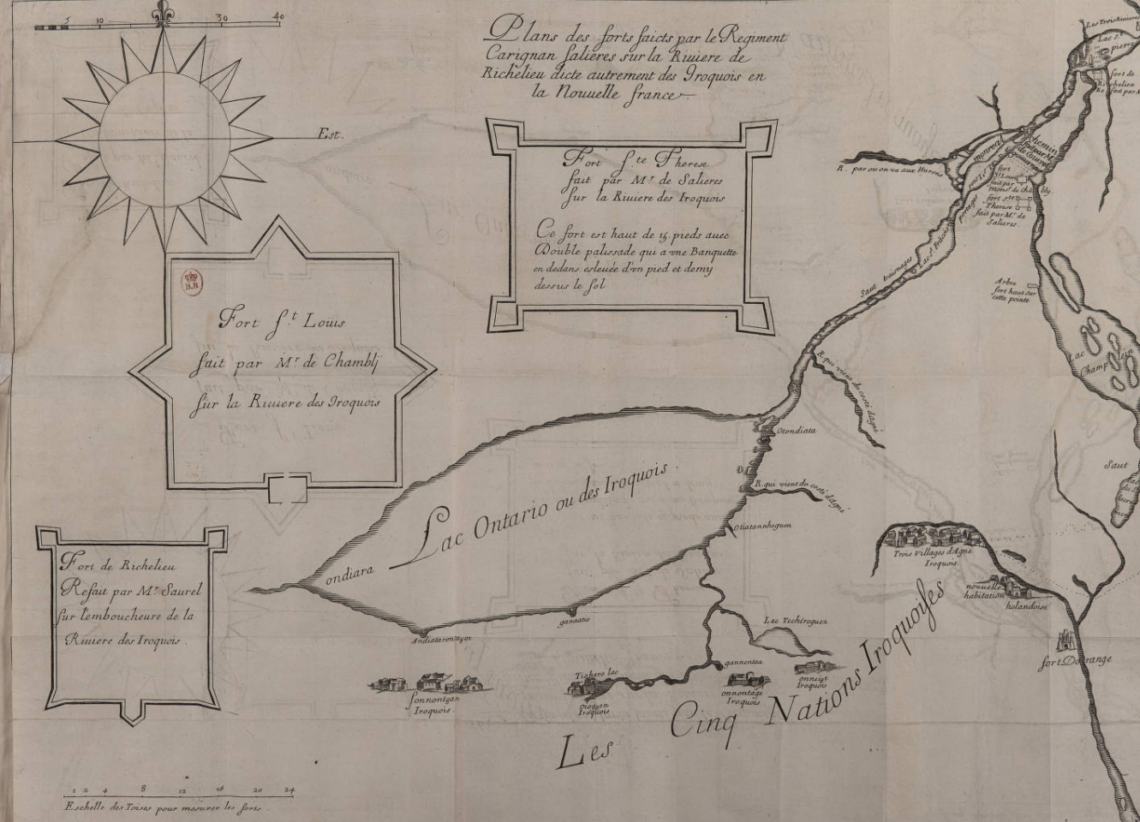 5 10 30 40
Plans des forts faicts par le Regiment
Carignan Salieres sur la Riuiere de
Richelieu dicte autrement des Iroquois en
la Nouuelle france
Est.
Fort S.te Therese
fait par Mr de Salieres
sur la Riuiere des Iroquois
Ce fort est haut de 15 pieds auec
Double palissade qui a vne Banquette
en dedans esleuée d'vn pied et demy
dessus le sol
Fort S.t Louis
fait par Mr de Chamblij
sur la Riuiere des Iroquois
Fort de Richelieu
Refait par Mr Saurel
sur l'emboucheure de la
Riuiere des Iroquois
Lac St.
pierre
fort de
Richelieu
chemin
monreal
R. par ou on va aux Hurons
fort
St Louis
fait par
fort ste
Therese
fait par Mr de
Salieres.
Lac St. François
Saut
Arbre
fort haut sur
cette pointe
Lac
Champlain
R. qui vient du costé d'Agné
Otondiata
R. qui vient du costé d'Agné
Lac Ontario ou des Iroquois.
ondiara
Saut
Trois Villages d'Agné
Iroquois
nouuelle
habitation
holandoise
fort Dorange
Lac Techiroguen
gannontaa
onneiyt
Iroquois
Tichero lac
Iroquois
onnontagé
Iroquois
Sonnontouan
Iroquois
Les Cinq Nations Iroquoises
1 2 4 8 12 16 20 24
Eschelle des Toises pour mesurer les forts.